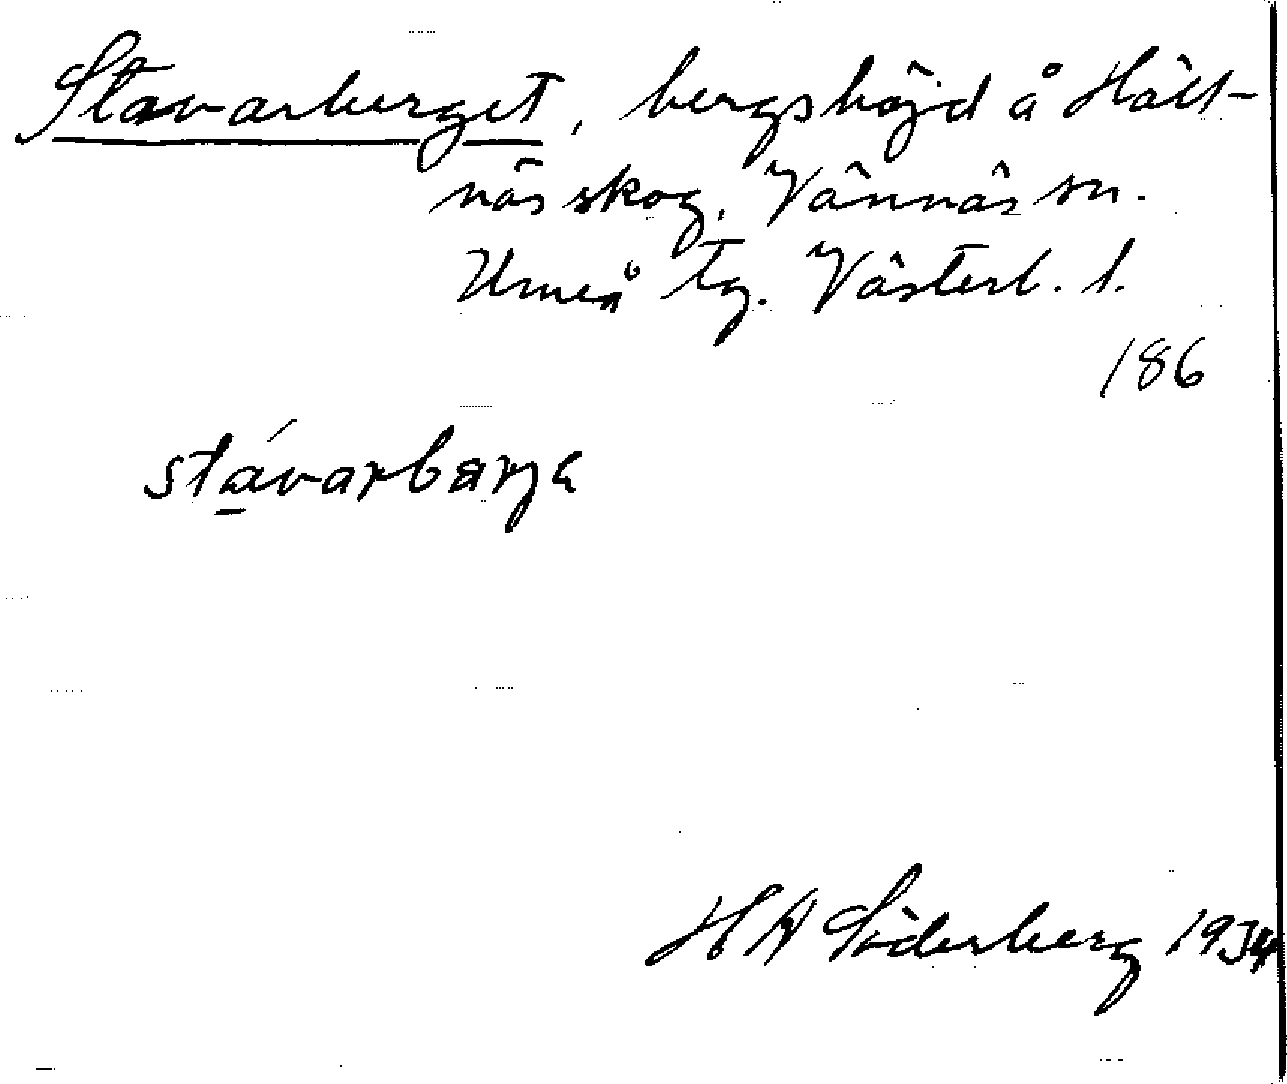 Stavarberget, bergshöjd å Hält-
näs skog, Vännäs sn.
Umeå tg. Västerb. l.
186
stávarbarja
H W Söderberg 1934